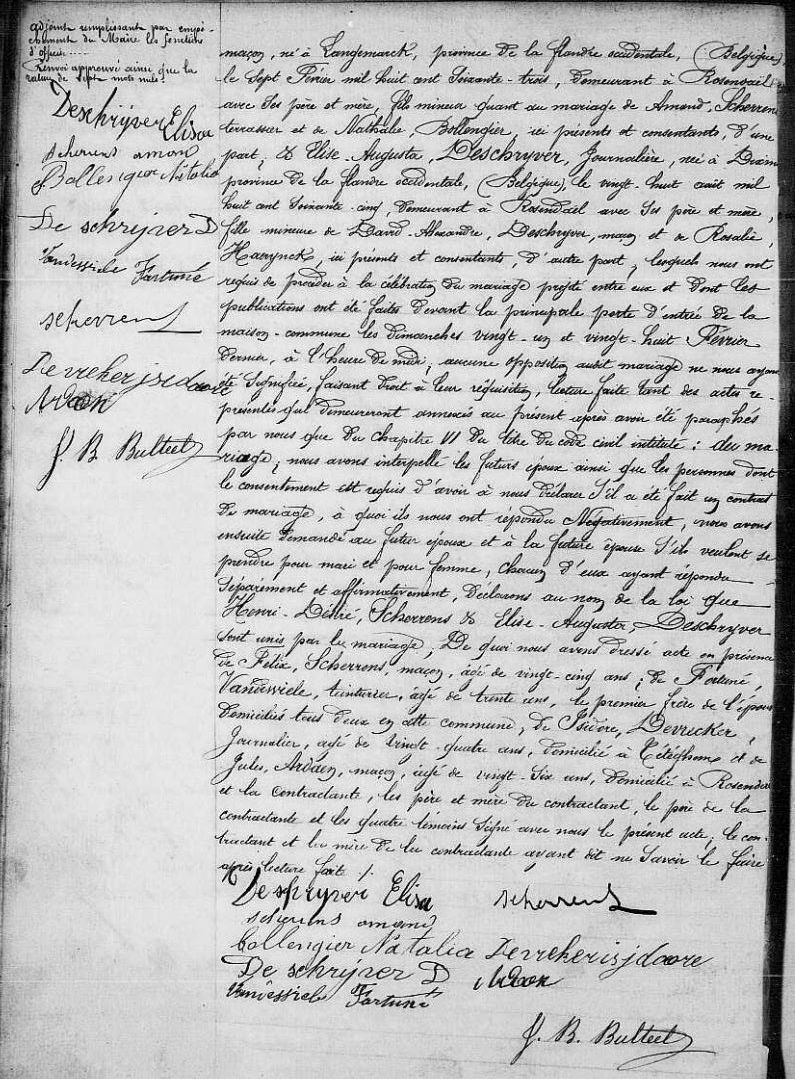 adjoint remplissant par empê-
chement du Maire les fonctions
d'officier
Renvoi approuvé ainsi que la
rature de sept mots nuls.
Deschrijver Elisa
scherens amand
Bollengier Natalia
De schrijver D
Vandessiele Fortuné
scherrens
Devrekerisjdoore
Ardaen
J. B. Bulteel
maçon, né à Langemarck, province de la flandre occidentale, (Belgique)
le sept Février mil huit cent soixante-trois, demeurant à Rosendaël
avec ses père et mère, fils mineur quant au mariage de Amand, Scherrens
terrassier et de Nathalie, Bollengier, ici présents et consentants, d'une
part, & Elise-Augusta, Deschryver, Journalière, née à
province de la flandre occidentale, (Belgique), le vingt-huit août mil
huit cent soixante-cinq, demeurant à Rosendaël avec ses père et mère,
fille mineure de David-Alexandre, Deschryver, maçon et de Rosalie,
Haerynck, ici présents et consentants, d'autre part, lesquels nous ont
requis de procéder à la célébration du mariage projeté entre eux et dont les
publications ont été faites devant la principale porte d'entrée de la
maison-commune les dimanches vingt-un et vingt-huit Février
dernier, à l'heure de midi; aucune opposition audit mariage ne nous ayant
été signifiée, faisant droit à leur réquisition, lecture faite tant des actes re-
présentés qui demeureront annexés au présent après avoir été paraphés
par nous que du chapitre VI du titre du code civil intitulé: du ma-
riage, nous avons interpellé les futurs époux ainsi que les personnes dont
le consentement est requis d'avoir à nous déclarer s'il a été fait un contrat
de mariage, à quoi ils nous ont répondu Négativement, nous avons
ensuite demandé au futur époux et à la future épouse s'ils veulent se
prendre pour mari et pour femme, chacun d'eux ayant répondu
séparément et affirmativement, déclarons au nom de la loi que
Henri-Désiré, Scherrens & Elise-Augusta, Deschryver
sont unis par le mariage; De quoi nous avons dressé acte en présence
de Félix, Scherrens, maçon, âgé de vingt-cinq ans; de Fortuné,
Vandwiele, teinturier, âgé de trente ans, le premier frère de l'époux
domiciliés tous deux en cette commune, de Isidore, Devricker,
Journalier, âgé de vingt-quatre ans, domicilié à Téteghem et de
Jules, Ardaen, maçon, âgé de vingt-six ans, domicilié à Rosendaël
et la contractante, les père et mère du contractant, le père de la
contractante et les quatre témoins signé avec nous le présent acte, le con-
tractant et la mère de la contractante ayant dit ne savoir le faire
après lecture faite /.
Deschryver Elisa scherrens
scherens amand
bollengier Natalia Devrekerisjdoore
De schrijver D Ardaen
Vandessiele Fortuné
J. B. Bulteel